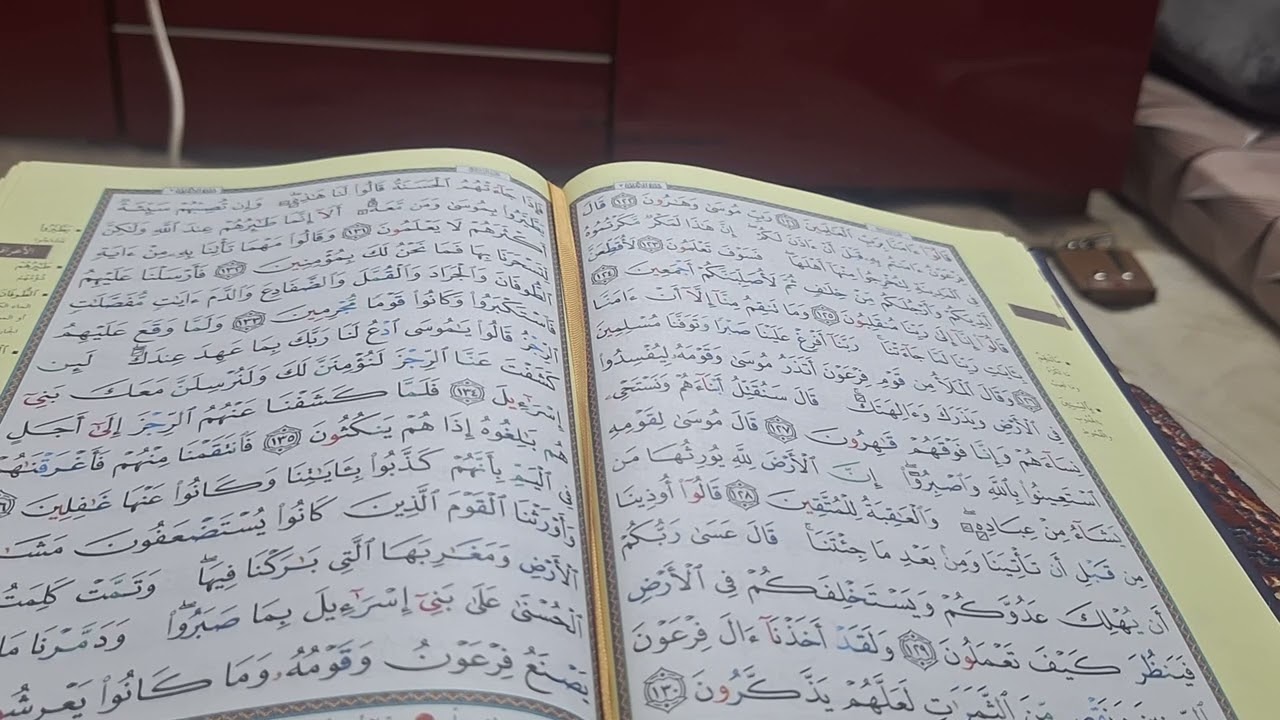 قَالُوٓا۟ ءَامَنَّا بِرَبِّ ٱلْعَـٰلَمِينَ ١٢١ رَبِّ مُوسَىٰ وَهَـٰرُونَ ١٢٢ قَالَ
فِرْعَوْنُ ءَامَنتُم بِهِۦ قَبْلَ أَنْ ءَاذَنَ لَكُمْ إِنَّ هَـٰذَا لَمَكْرٌ مَّكَرْتُمُوهُ
فِى ٱلْمَدِينَةِ لِتُخْرِجُوا۟ مِنْهَآ أَهْلَهَا فَسَوْفَ تَعْلَمُونَ ١٢٣ لَأُقَطِّعَنَّ
أَيْدِيَكُمْ وَأَرْجُلَكُم مِّنْ خِلَـٰفٍ ثُمَّ لَأُصَلِّبَنَّكُمْ أَجْمَعِينَ ١٢٤
قَالُوٓا۟ إِنَّآ إِلَىٰ رَبِّنَا مُنقَلِبُونَ ١٢٥ وَمَا تَنقِمُ مِنَّآ إِلَّآ أَنْ ءَامَنَّا
بِـَٔايَـٰتِ رَبِّنَا لَمَّا جَآءَتْنَا رَبَّنَآ أَفْرِغْ عَلَيْنَا صَبْرًا وَتَوَفَّنَا مُسْلِمِينَ
١٢٦ وَقَالَ ٱلْمَلَأُ مِن قَوْمِ فِرْعَوْنَ أَتَذَرُ مُوسَىٰ وَقَوْمَهُۥ لِيُفْسِدُوا۟
فِى ٱلْأَرْضِ وَيَذَرَكَ وَءَالِهَتَكَ قَالَ سَنُقَتِّلُ أَبْنَآءَهُمْ وَنَسْتَحْىِۦ
نِسَآءَهُمْ وَإِنَّا فَوْقَهُمْ قَـٰهِرُونَ ١٢٧ قَالَ مُوسَىٰ لِقَوْمِهِ
ٱسْتَعِينُوا۟ بِٱللَّهِ وَٱصْبِرُوٓا۟ إِنَّ ٱلْأَرْضَ لِلَّهِ يُورِثُهَا مَن
يَشَآءُ مِنْ عِبَادِهِۦ وَٱلْعَـٰقِبَةُ لِلْمُتَّقِينَ ١٢٨ قَالُوٓا۟ أُوذِينَا
مِن قَبْلِ أَن تَأْتِيَنَا وَمِنۢ بَعْدِ مَا جِئْتَنَا قَالَ عَسَىٰ رَبُّكُمْ
أَن يُهْلِكَ عَدُوَّكُمْ وَيَسْتَخْلِفَكُمْ فِى ٱلْأَرْضِ
فَيَنظُرَ كَيْفَ تَعْمَلُونَ ١٢٩ وَلَقَدْ أَخَذْنَآ ءَالَ فِرْعَوْنَ
مِّنَ ٱلثَّمَرَٰتِ لَعَلَّهُمْ يَذَّكَّرُونَ ١٣٠
فَإِذَا جَآءَتْهُمُ ٱلْحَسَنَةُ قَالُوا۟ لَنَا هَـٰذِهِۦ وَإِن تُصِبْهُمْ سَيِّئَةٌ
يَطَّيَّرُوا۟ بِمُوسَىٰ وَمَن مَّعَهُۥٓ أَلَآ إِنَّمَا طَـٰٓئِرُهُمْ عِندَ ٱللَّهِ وَلَـٰكِنَّ
أَكْثَرَهُمْ لَا يَعْلَمُونَ ١٣١ وَقَالُوا۟ مَهْمَا تَأْتِنَا بِهِۦ مِنْ ءَايَةٍ
لِّتَسْحَرَنَا بِهَا فَمَا نَحْنُ لَكَ بِمُؤْمِنِينَ ١٣٢ فَأَرْسَلْنَا عَلَيْهِمُ
ٱلطُّوفَانَ وَٱلْجَرَادَ وَٱلْقُمَّلَ وَٱلضَّفَادِعَ وَٱلدَّمَ ءَايَـٰتٍ مُّفَصَّلَـٰتٍ
فَٱسْتَكْبَرُوا۟ وَكَانُوا۟ قَوْمًا مُّجْرِمِينَ ١٣٣ وَلَمَّا وَقَعَ عَلَيْهِمُ
ٱلرِّجْزُ قَالُوا۟ يَـٰمُوسَى ٱدْعُ لَنَا رَبَّكَ بِمَا عَهِدَ عِندَكَ لَئِن
كَشَفْتَ عَنَّا ٱلرِّجْزَ لَنُؤْمِنَنَّ لَكَ وَلَنُرْسِلَنَّ مَعَكَ بَنِىٓ
إِسْرَٰٓءِيلَ ١٣٤ فَلَمَّا كَشَفْنَا عَنْهُمُ ٱلرِّجْزَ إِلَىٰٓ أَجَلٍ
هُم بَـٰلِغُوهُ إِذَا هُمْ يَنكُثُونَ ١٣٥ فَٱنتَقَمْنَا مِنْهُمْ فَأَغْرَقْنَـٰهُمْ
فِى ٱلْيَمِّ بِأَنَّهُمْ كَذَّبُوا۟ بِـَٔايَـٰتِنَا وَكَانُوا۟ عَنْهَا غَـٰفِلِينَ
وَأَوْرَثْنَا ٱلْقَوْمَ ٱلَّذِينَ كَانُوا۟ يُسْتَضْعَفُونَ
ٱلْأَرْضِ وَمَغَـٰرِبَهَا ٱلَّتِى بَـٰرَكْنَا فِيهَا وَتَمَّتْ كَلِمَتُ
ٱلْحُسْنَىٰ عَلَىٰ بَنِىٓ إِسْرَٰٓءِيلَ بِمَا صَبَرُوا۟ وَدَمَّرْنَا مَا
يَصْنَعُ فِرْعَوْنُ وَقَوْمُهُۥ وَمَا كَانُوا۟